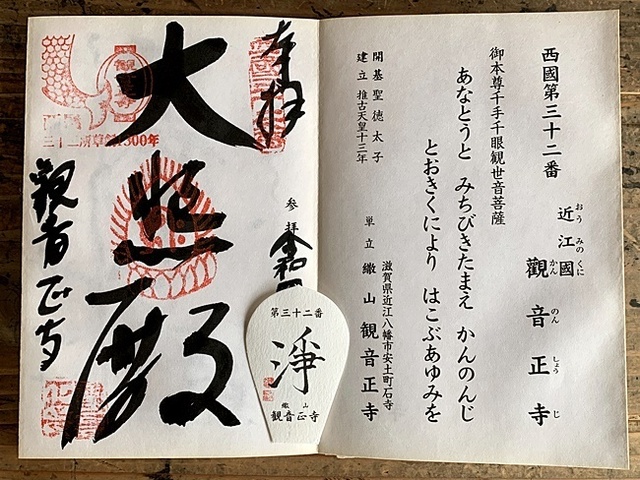 西國第三十二番
近江國 觀音正寺
おうみのくに かんのんしょうじ
御本尊千手千眼観世音菩薩
あなとうと みちびきたまえ かんのんじ
とおきくにより はこぶあゆみを
開基聖徳太子
建立 推古天皇十三年
滋賀県近江八幡市安土町石寺
単立 繖山 観音正寺
奉拝
参拝 令和
大悲殿
観音正寺
300年
第三十二番
淨
繖山
観音正寺